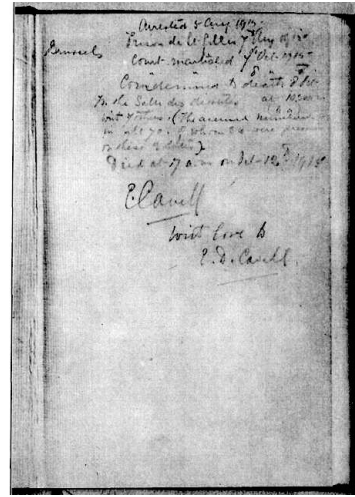 Arrested 5 Aug 1915
Brussels Prison de St Gilles 7th Aug 1915
Court-martialed 7th Oct 1915
Condemned to death 8th
In the Salle des deputes at 10.30 a.m.
with 7 others. (The accused numbered
in all 70. of whom 34 were present
on these 2 dates)
Died at 7 a.m. on Oct-12th 1915
E. Cavell
With love to
E. D. Cavell